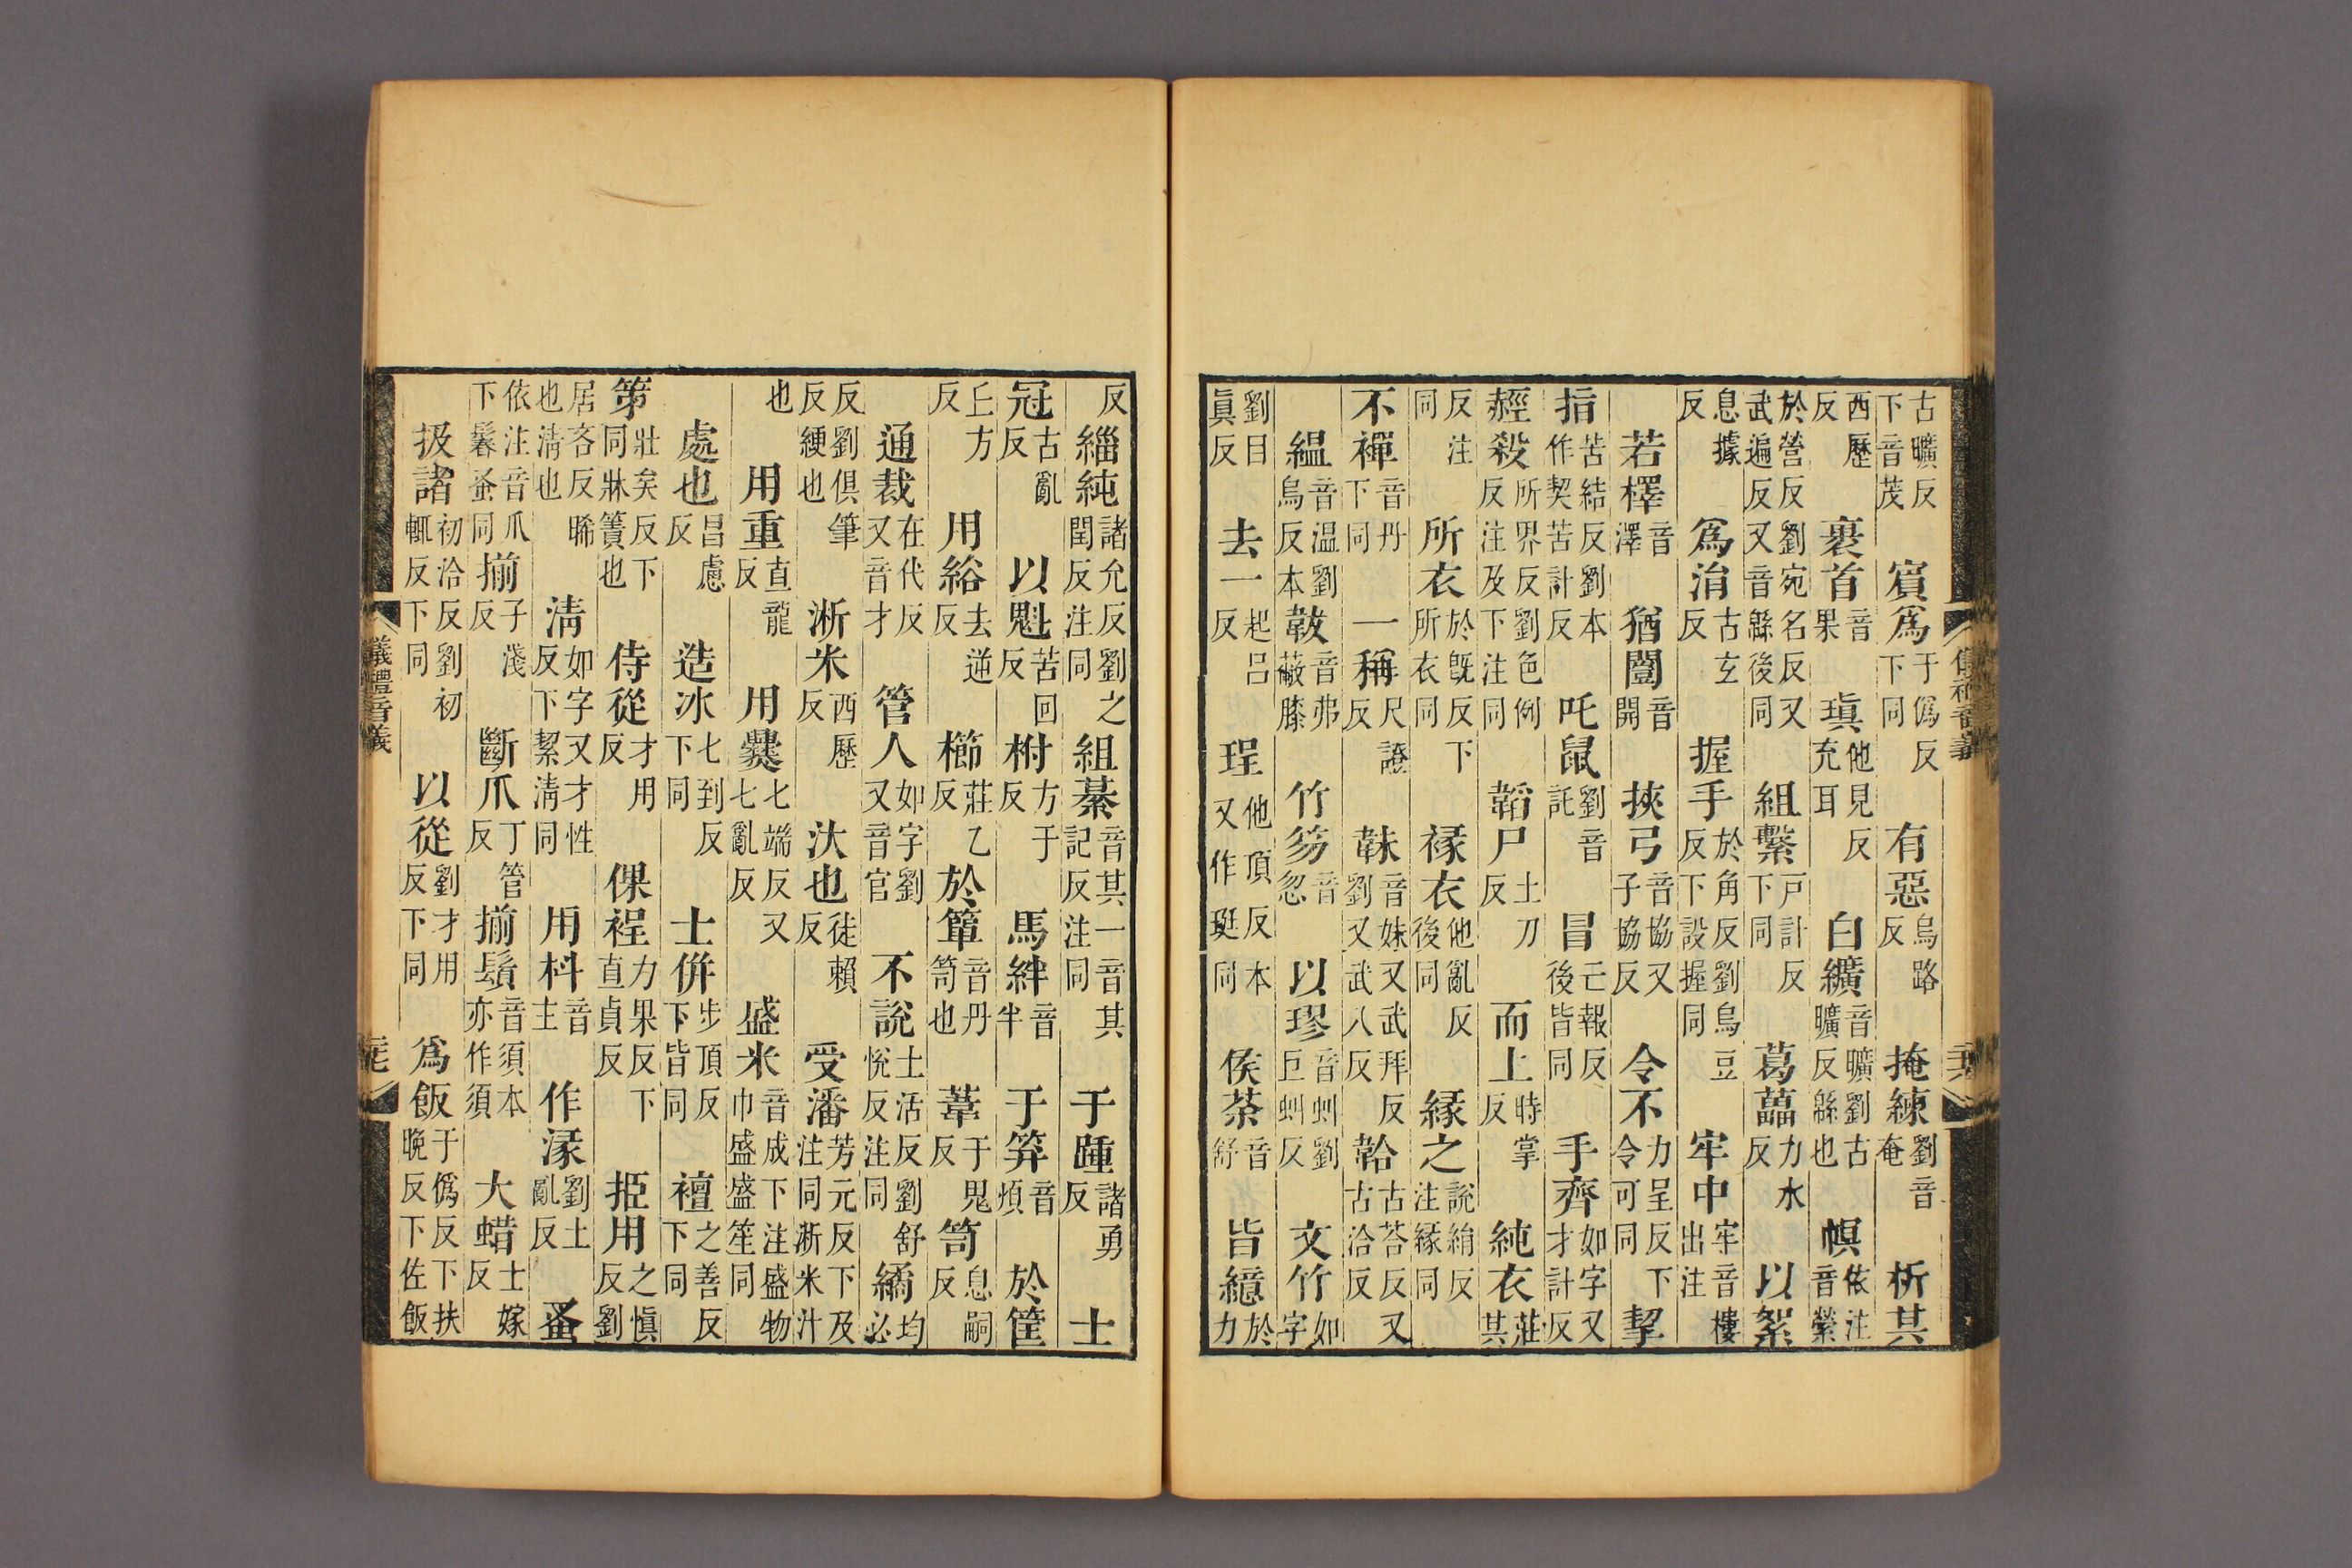 古曠反下音茂 賔爲于僞反下同 有惡烏路反 掩練劉音奄 析其
西歷反 裹首音果 瑱他見反充耳 白纊音曠劉古曠反緜也 幎依注音縈
於營反劉宛名反又武遍反又音緜後同 組繫戶計反下同 葛藟力水反 以絮
息據反 爲涓古玄反 握手於角反劉烏豆反下設握同 牢中牢音樓出注
若檡音澤 猶闓音開 挾弓音協又子協反 令不力呈反下令可同 挈
指苦結反劉本作契苦計反 吒鼠劉音託 冒亡報反後皆同 手齊如字又才計反
䞓殺所界反劉色例反注及下注同 韜尸土刀反 而上時掌反 純衣莊其
反注同 所衣於旣反下所衣同 褖衣他亂反後同 緣之說絹反注緣同
不襌音丹下同 一稱尺證反 韎音妹又武拜反劉又武八反 韐古荅反又古洽反
縕音温劉烏反本 韍音弗蔽膝 竹笏音忽 以璆音虯劉巨虯反 文竹如字
劉目眞反 去一起呂反 珵他頂反本又作珽同 侯荼音舒 皆繶於力
儀禮音義
反 緇純諸允反劉之閏反注同 組綦音其一音其記反注同 于踵諸勇反 士
冠古亂反 以魁苦回反 柎方于反 馬絆音半 于笲音煩 於筐
丘方反 用綌去逆反 櫛莊乙反 於簞音丹笥也 葦于鬼反 笥息嗣反
通裁在代反又音才 管人如字劉又音官 不說土活反劉舒悅反注同 繘均必
反劉俱筆反綆也 淅米西歷反 汏也徒賴反 受潘芳元反下及注同淅米汁
也 用重直龍反 用爨七端反又七亂反 盛米音成下注盛物巾盛盛笙同
處也昌慮反 造冰七到反下同 士併步頂反下皆同 襢之善反下同
第壯矣反下同牀簀也 侍從才用反 倮裎力果反下直貞反 挋用之愼反劉
居吝反晞也淸也 淸如字又才性反下絜淸同 用枓音主 作湪劉土亂反 蚤
依注音爪下鬠蚤同 揃子淺反 斷爪丁管反 揃鬚音須本亦作須 大蜡士嫁反
扱諸初洽反劉初輒反下同 以從劉才用反下同 爲飯于僞反下扶晚反下佐飯
儀禮音義